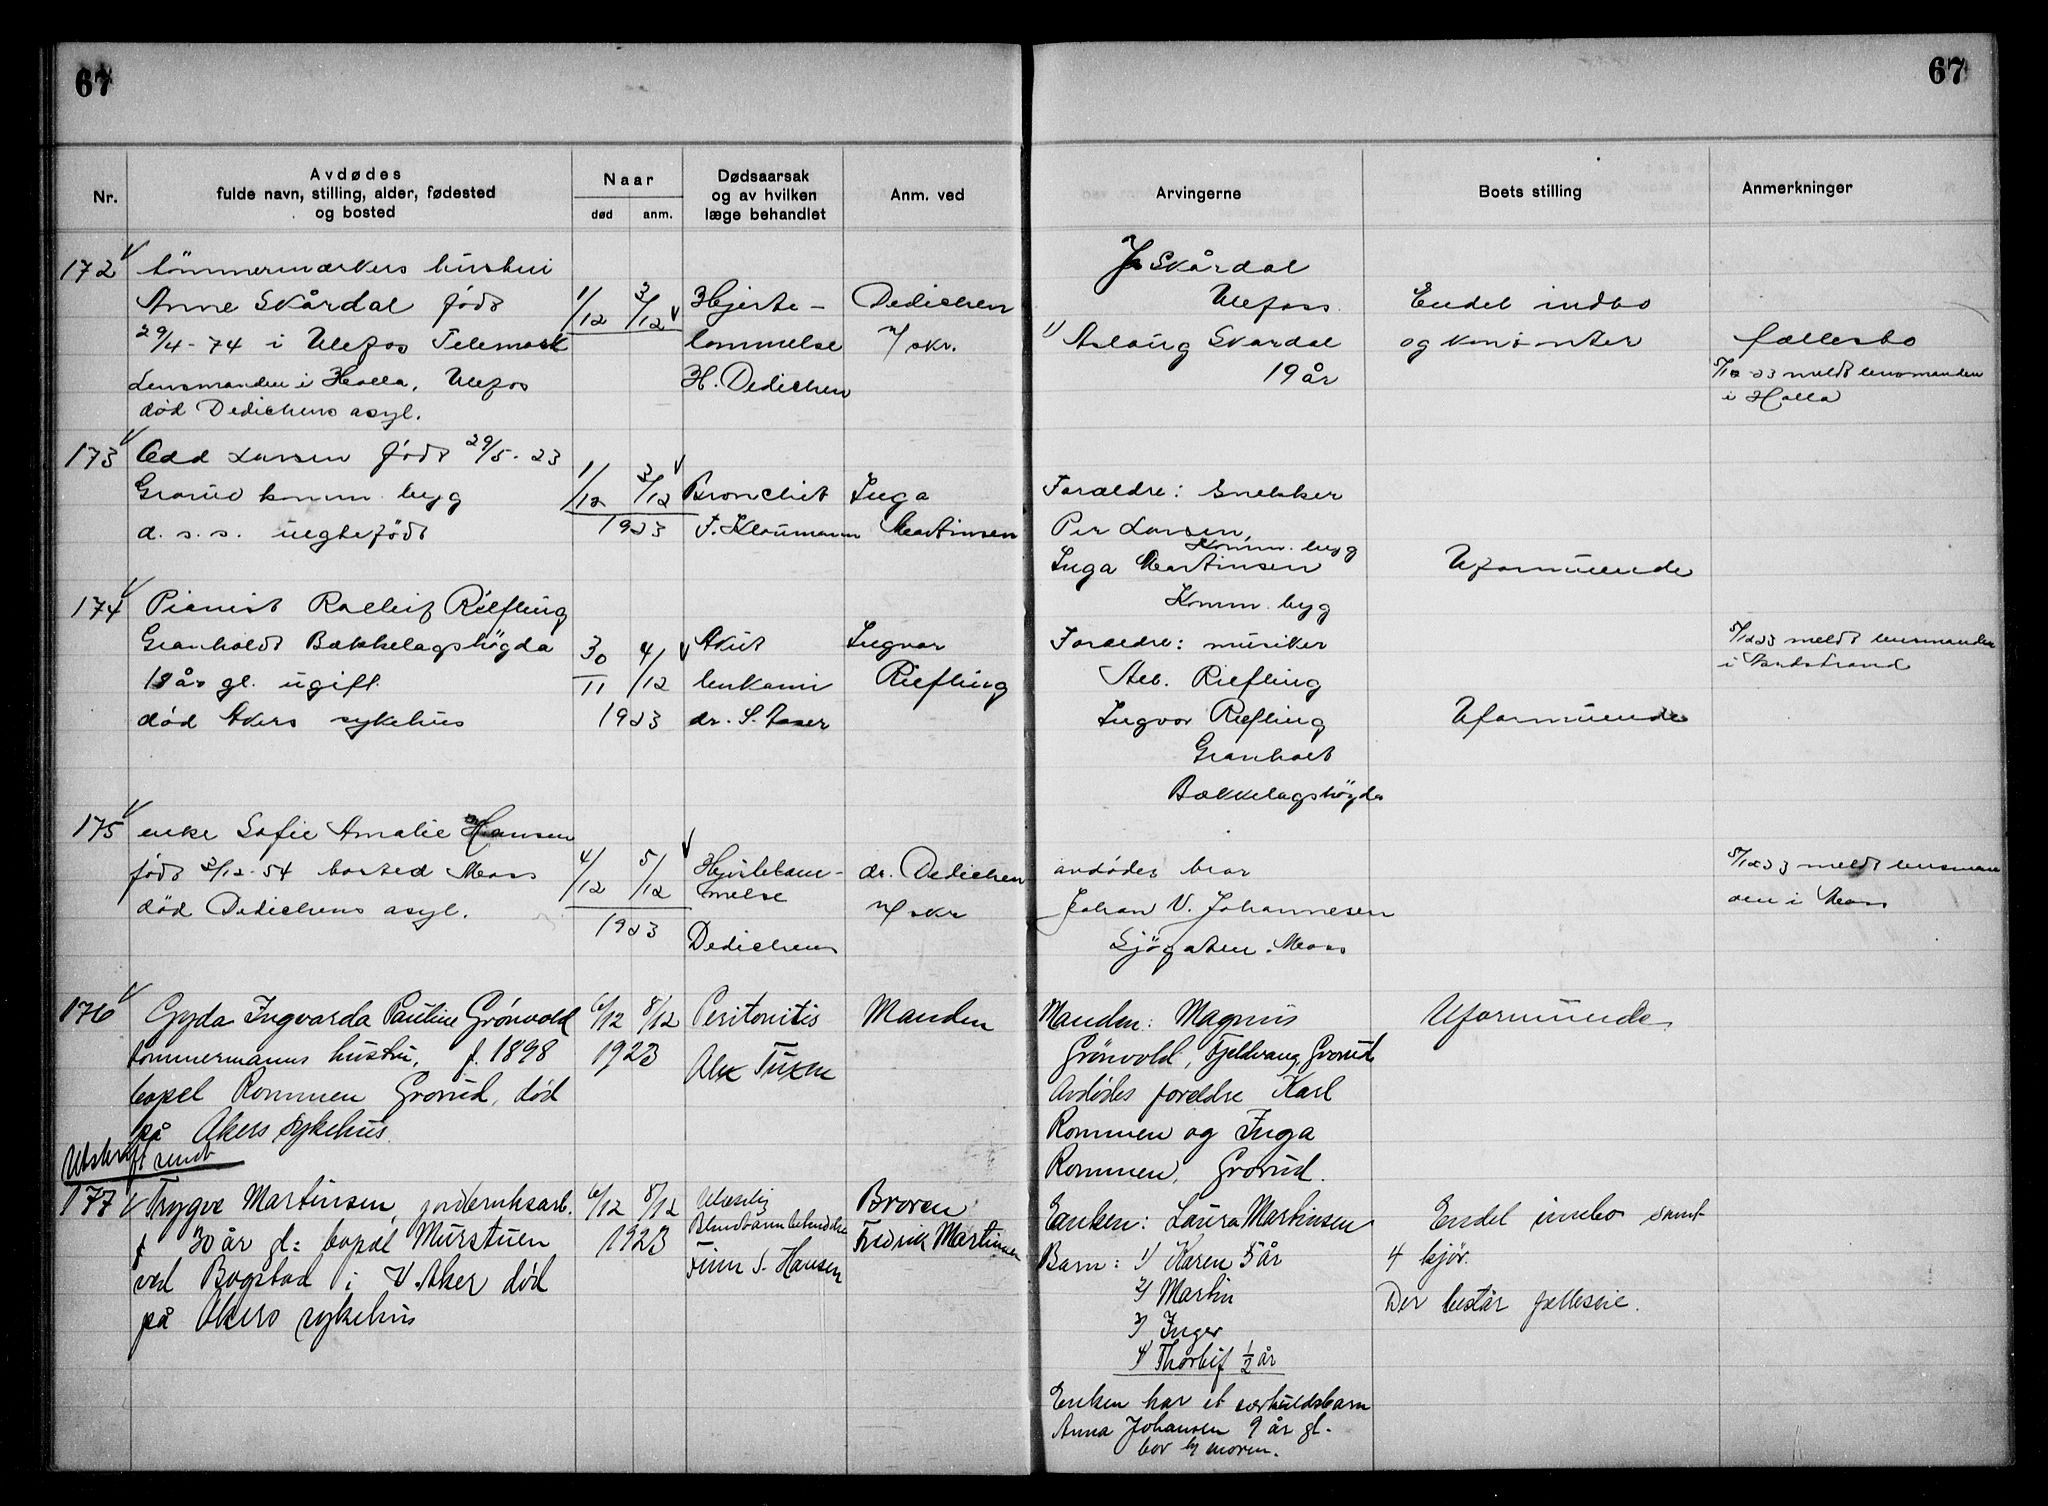 67
67
Nr.
Avdødes
fulde navn, stilling, alder, fødested
og bosted
Naar
død
anm.
Dødsaarsak
og av hvilken
læge behandlet
Anm. ved
Arvingerne
Boets stilling
Anmerkninger
172
tömmermærkers hustru
Anne Skårdal født
29/4-74 i Ulefos Telemark
Lensmanden i Holla, Ulefos
död Dedichens asyl.
1/12
3/12
Hjerte-
lammelse
H. Dedichen
Dedichen
skr.
Skårdal
Ulefoss
1) Aslaug Skardal
19 år
Endel indbo
og kontanter
fællesbo
5/12 23 meldt lensmanden
i Holla
173
Odd Larsen födt 29/5-23
Grorud komm. byg
d. s. s. uegtefödt
1/12
3/12
1923
Bronchit
F. Klaumann
Inga
Martinsen
Forældre: Snekker
Per Larsen,
Komm. byg
Inga Martinsen
Komm. byg
Uformuende
174
Pianist Rolleif Riefling
Granholdt Bækkelagshögda
18 år gl. ugift.
död Akers sykehus
30/11
4/12
1923
Akut
leukami
dr. S.
Ingvar
Riefling
Forældre: musiker
Alb. Riefling
Ingvor Riefling
Granholt
Bækkelagshögda
Uformuende
5/12 23 meldt lensmanden
i Nordstrand
175
enke Sofie Amalie Hansen
födt 3/12-54 bosted Moss
död Dedichens asyl.
4/12
5/12
1923
Hjertelam-
melse
Dedichens
dr. Dedichen
skr
avdödes bror
Johan V. Johannesen
Sjögaten. Moss
5/12 23 meldt lensman
den i Moss
176
Gyda Ingvarda Pauline Grönvold
tömmermanns hustru, f. 1898
bopel Rommen Grorud, död
på Akers sykehus.
6/12
8/12
1923
Peritonitis
Alex Tuxen
Manden
Manden: Magnus
Grönvold, Fjeldvang, Grorud
Avdødes foreldre Karl
Rommen og Inga
Rommen, Grorud.
Uformuende
Utskrift sendt
177
Trygve Martinsen, jordbruksarb.
30 år gl: bopel Murstuen
ved Bogstad i V. Aker död
på Akers sykehus
6/12
8/12
1923
Blindtarmbetendelse
Finn S. Hansen
Broren
Fredrik Martinsen
Enken: Laura Martinsen
Barn: 1) Karen 5 år
2) Martin
3) Inger
4) Thorleif 1/2 år
Enken har et særkuldsbarn
Anna Johansen 9 år gl.
bor h/ moren.
Endel innbo samt
4 kjör.
Der består felleseie.